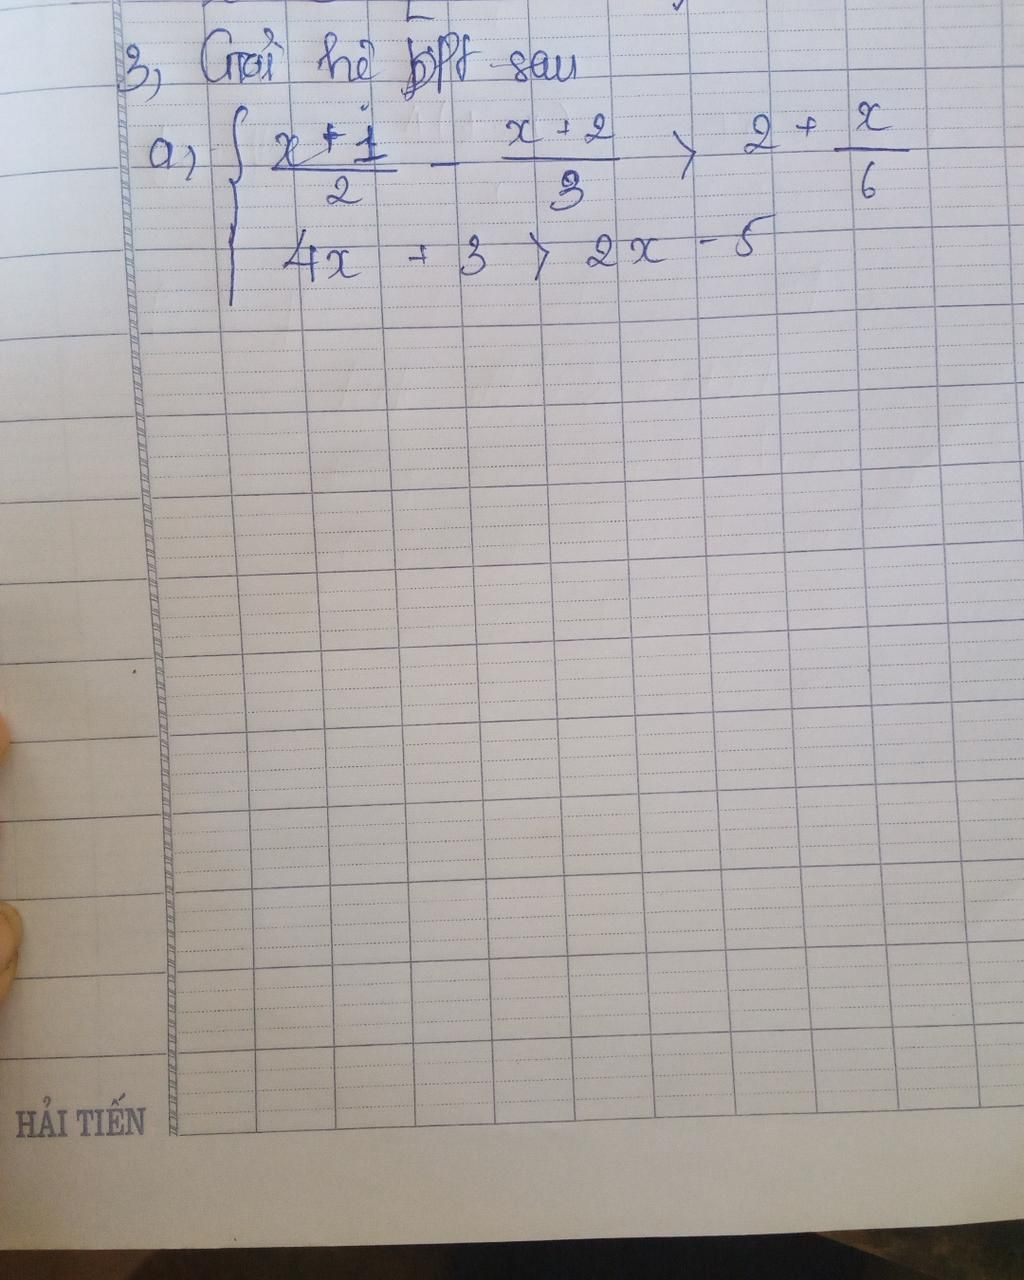 3, Giải hệ bpt sau
a, { x + 1 / 2 - x + 2 / 3 > 2 + x / 6
4x + 3 > 2x - 5
HẢI TIẾN